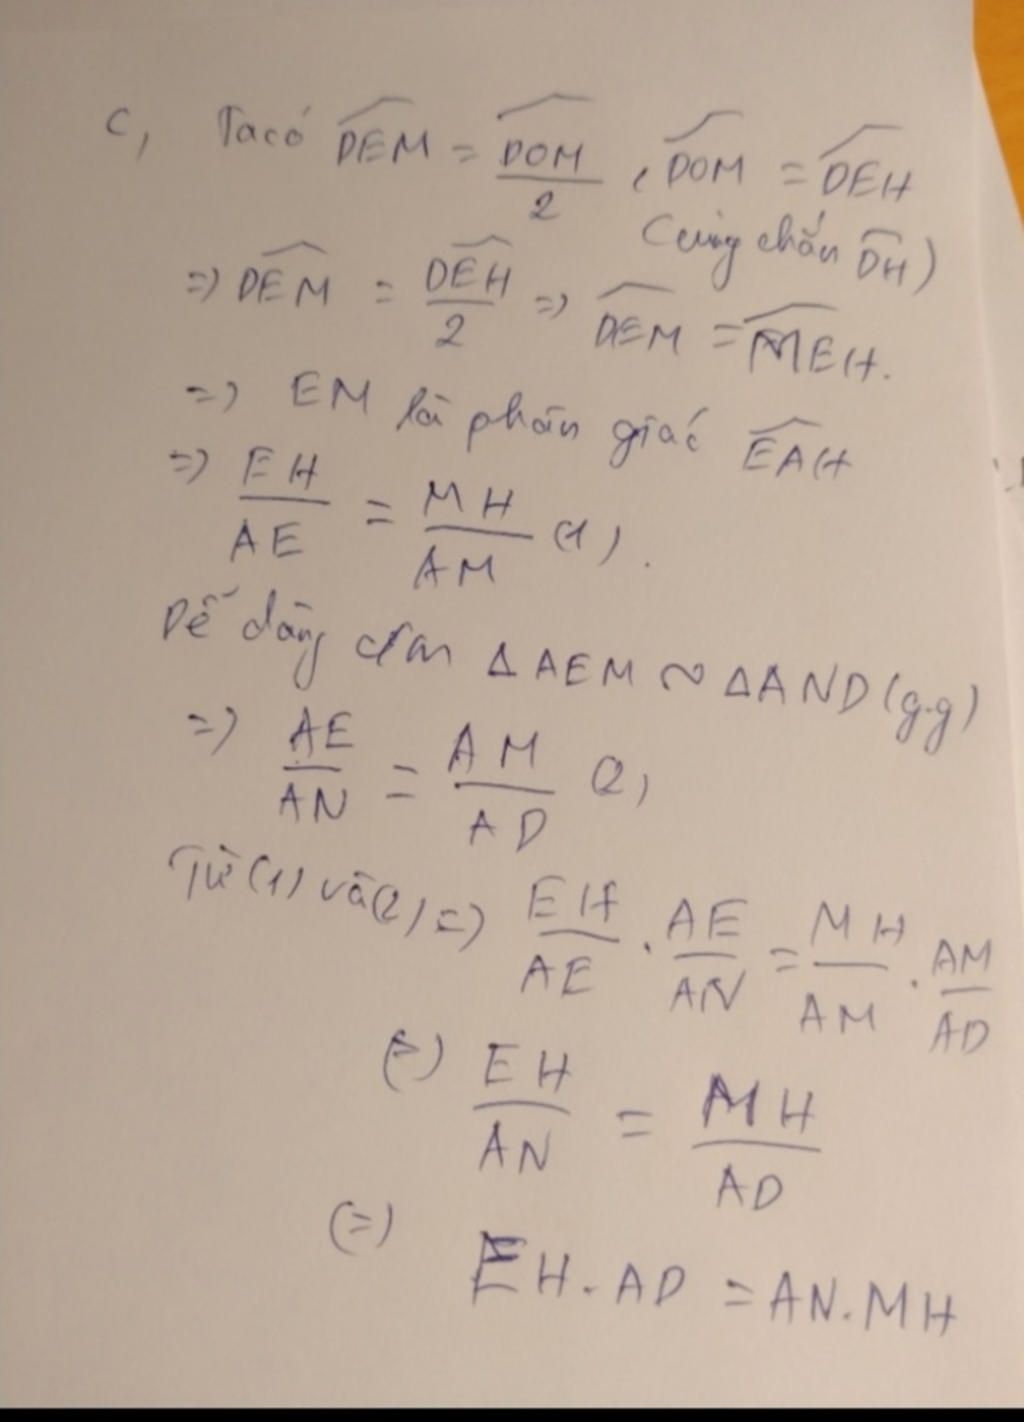 C, Ta có \widehat{DEM} = \frac{\widehat{DOM}}{2}, \widehat{DOM} = \widehat{DEH}
(cùng chắn \widehat{DH})
=> \widehat{DEM} = \frac{\widehat{DEH}}{2} => \widehat{DEM} = \widehat{MEH}.
=> EM là phân giác \widehat{EAH}
=> \frac{EH}{AE} = \frac{MH}{AM} (1).
Dễ dàng cm Δ AEM ~ Δ AND (g.g)
=> \frac{AE}{AN} = \frac{AM}{AD} (2)
Từ (1) và (2) => \frac{EH}{AE} . \frac{AE}{AN} = \frac{MH}{AM} . \frac{AM}{AD}
(=) \frac{EH}{AN} = \frac{MH}{AD}
(=) EH . AD = AN . MH